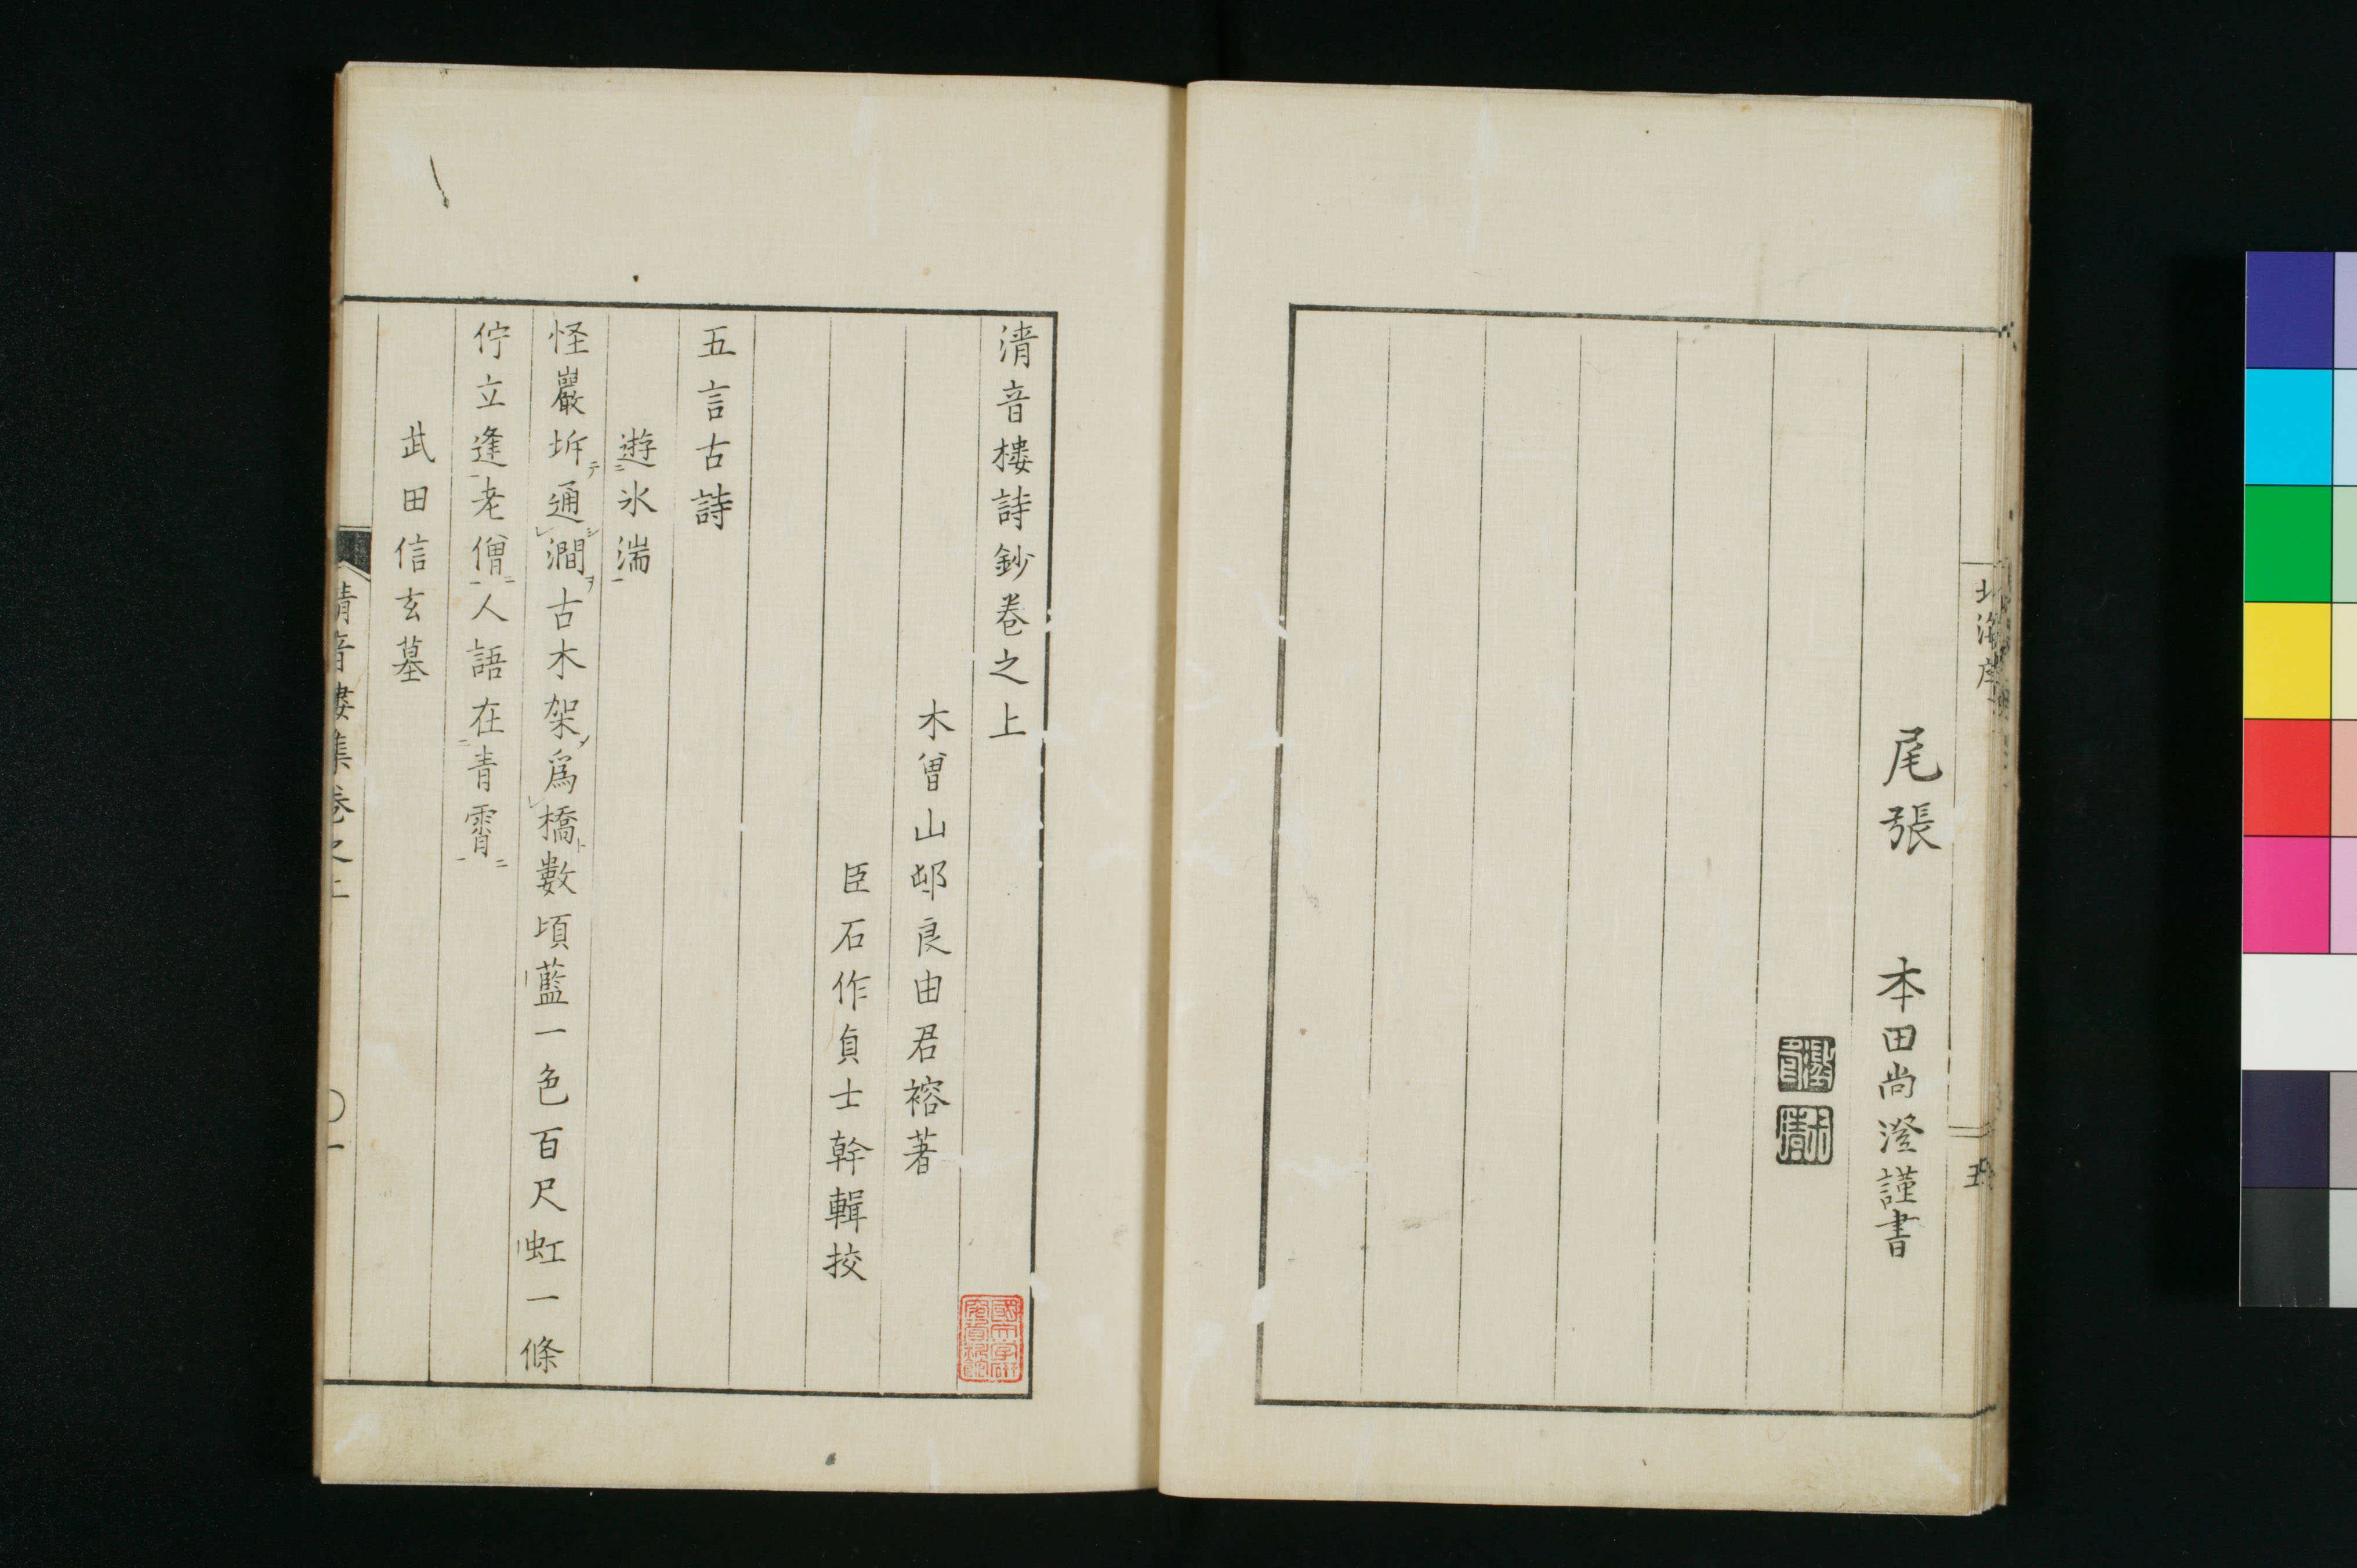 北海序
五
尾張　本田尚澄謹書
清音樓詩鈔卷之上
木曾山邨良由君裕著
臣石作貞士幹輯挍
五言古詩
遊氷湍
怪巖坼通澗古木架爲橋數頃藍一色百尺虹一條
佇立逢老僧人語在青霄
武田信玄墓
清音樓集卷之上
〇一